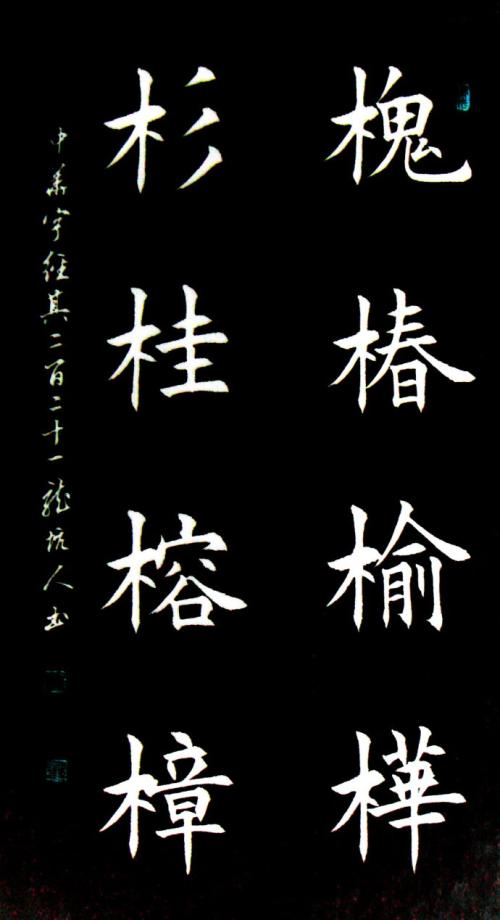 槐椿榆樺
杉桂榕樟
中華字經其二百二十一龍坑人書